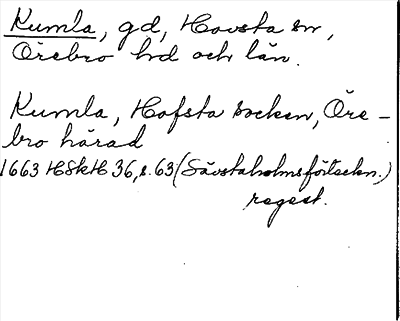 Kumla, gd, Hovsta sn,
Örebro hd och län.
Kumla, Hofsta socken, Öre-
bro härad
1663 HSkH 36, s. 63 (Sävstaholmsförteckn.)
regest.